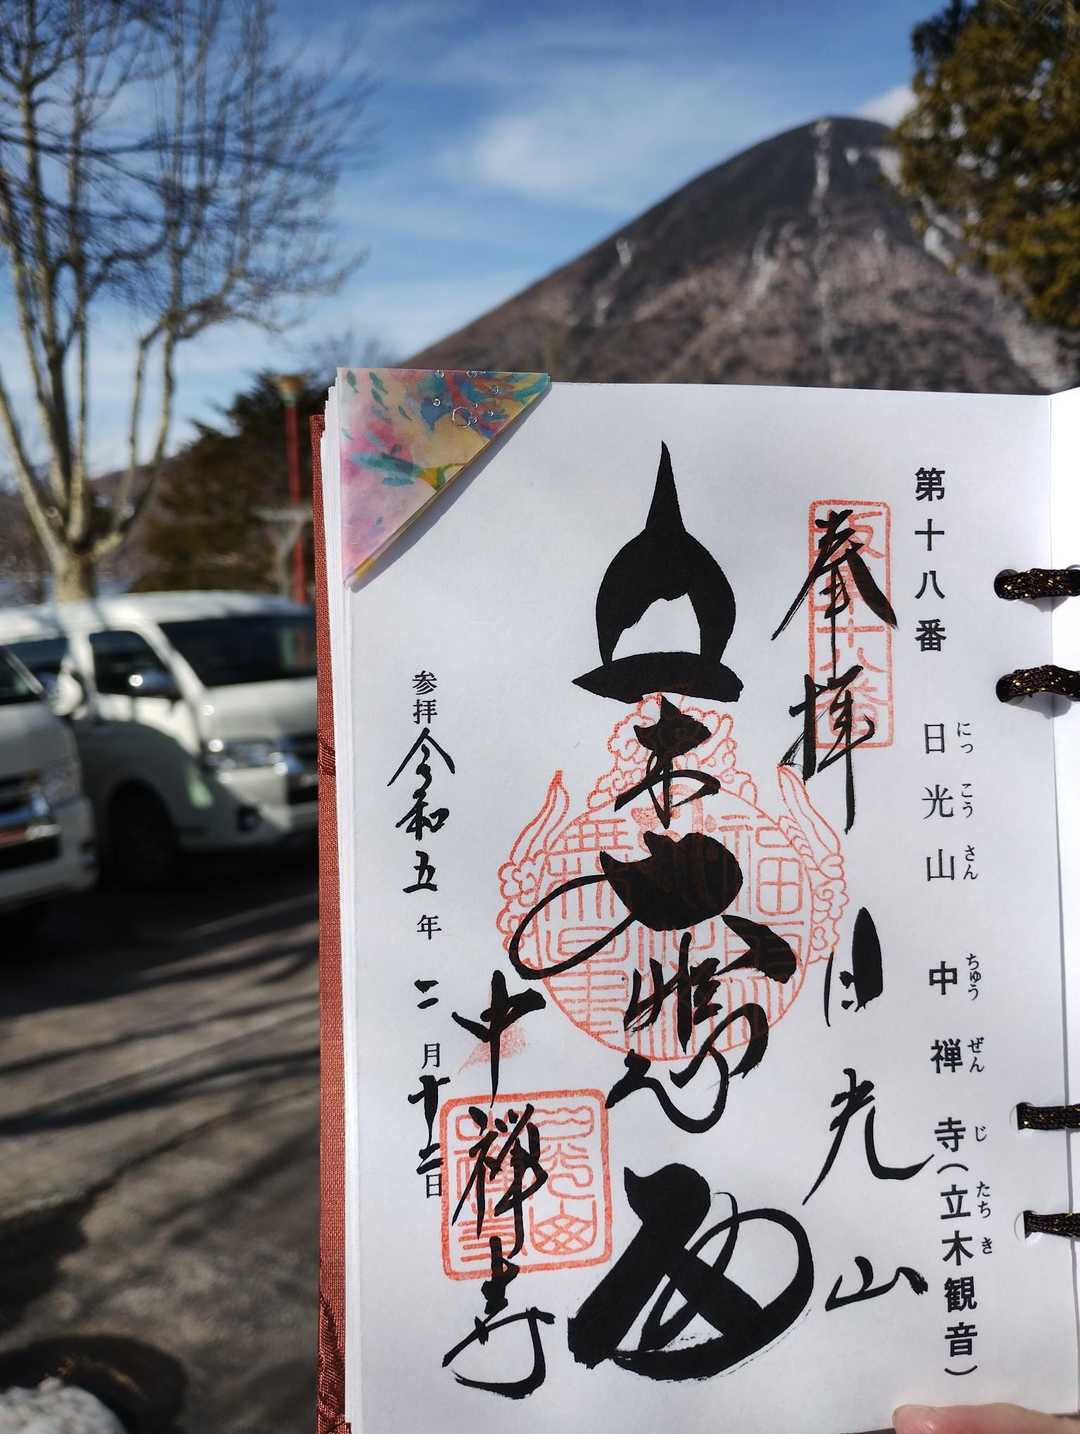 第十八番 日光山 中禅寺(立木観音)
にっこうさん ちゅうぜんじ たちき
奉拝 日光山
坂東十八番
立木
中禅寺
日光山中禅寺
参拝 令和五年 二月十二日